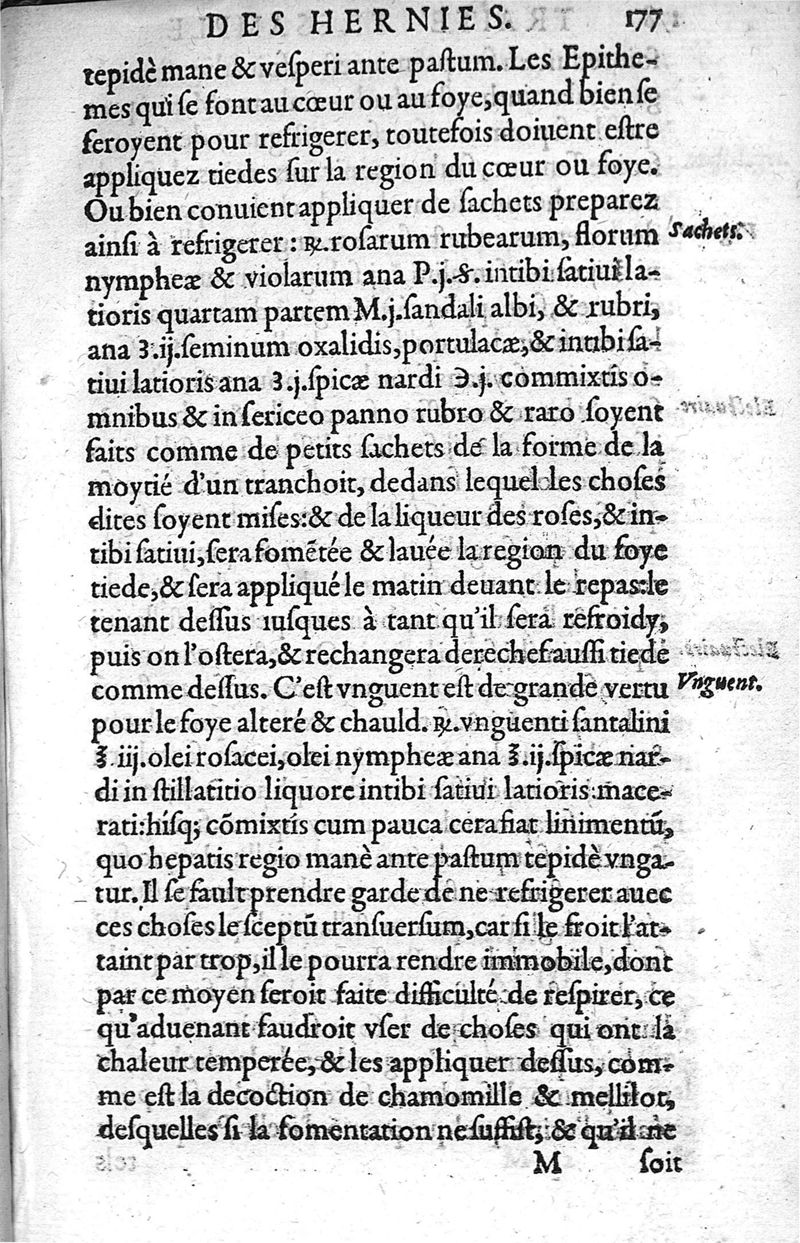 DES HERNIES. 177
tepidè mane & veſperi ante paſtum. Les Epithe-
mes qui ſe font au cœur ou au foye, quand bien ſe
feroyent pour refrigerer, toutefois doiuent eſtre
appliquez tiedes ſur la region du cœur ou foye.
Ou bien conuient appliquer de ſachets preparez
ainſi à refrigerer: ℞. roſarum rubearum, florum
Sachets.
nympheæ & violarum ana P.j.ß. intibi ſatiui la-
tioris quartam partem M.j. ſandali albi, & rubri,
ana ʒ.ij. ſeminum oxalidis, portulacæ, & intibi ſa-
tiui latioris ana ʒ.j. ſpicæ nardi ℈.j. commixtis o-
mnibus & in ſericeo panno rubro & raro ſoyent
faits comme de petits ſachets de la forme de la
moytié d'un tranchoit, dedans lequel les choſes
dites ſoyent miſes: & de la liqueur des roſes, & in-
tibi ſatiui, ſera fomẽtée & lauée la region du foye
tiede, & ſera appliqué le matin deuant le repas: le
tenant deſſus iuſques à tant qu'il ſera refroidy,
puis on l'oſtera, & rechangera derechef auſſi tiede
comme deſſus. C'eſt vnguent eſt de grande vertu
Vnguent.
pour le foye alteré & chauld. ℞. vnguenti ſantalini
℥.iij. olei roſacei, olei nympheæ ana ℥.ij. ſpicæ nar-
di in ſtillatitio liquore intibi ſatiui latioris mace-
rati: hiſq; cõmixtis cum pauca cera fiat linimentũ,
quo hepatis regio manè ante paſtum tepidè vnga-
tur. Il ſe fault prendre garde de ne refrigerer auec
ces choſes le ſceptũ tranſuerſum, car ſi le froit l'at-
taint par trop, il le pourra rendre immobile, dont
par ce moyen ſeroit faite difficulté de reſpirer, ce
qu'aduenant faudroit vſer de choſes qui ont la
chaleur temperée, & les appliquer deſſus, com-
me eſt la decoction de chamomille & mellilot,
deſquelles ſi la fomentation ne ſuffiſt, & qu'il ne
M ſoit